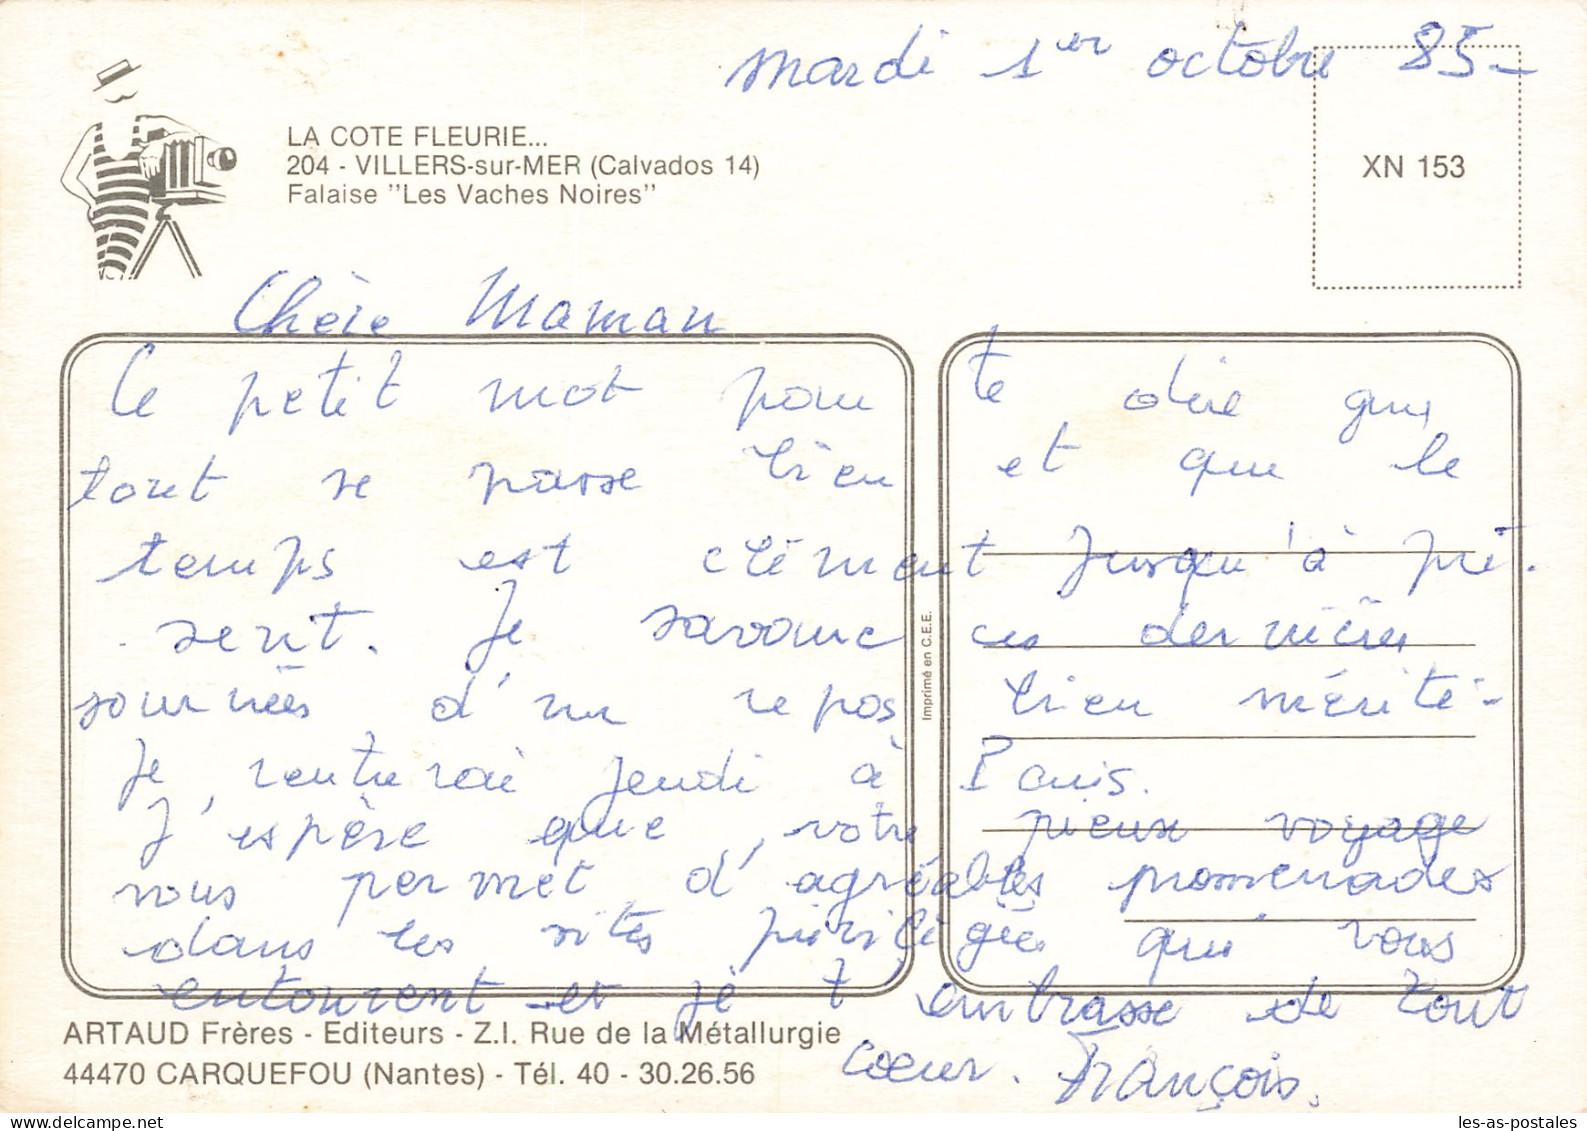 mardi 1er octobre 85-
LA COTE FLEURIE...
204 - VILLERS-sur-MER (Calvados 14)
Falaise "Les Vaches Noires"
XN 153
Chère Maman
Ce petit mot pour te dire que
tout se passe bien et que le
temps est clément jusqu'à pré-
sent. Je savoure ces dernières
journées d'un repos bien mérité-
Je rentrerai jeudi à Paris.
J'espère que votre pieux voyage
vous permet d'agréables promenades
dans les sites privilégiés qui vous
entourent et je t'embrasse de tout
coeur. François.
Imprimé en C.E.E.
ARTAUD Frères - Editeurs - Z.I. Rue de la Métallurgie
44470 CARQUEFOU (Nantes) - Tél. 40 - 30.26.56
les-as-postales